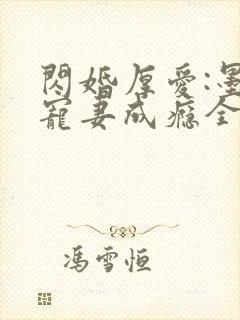 閃婚厚愛:墨
寵妻成癮全
馮雪恒